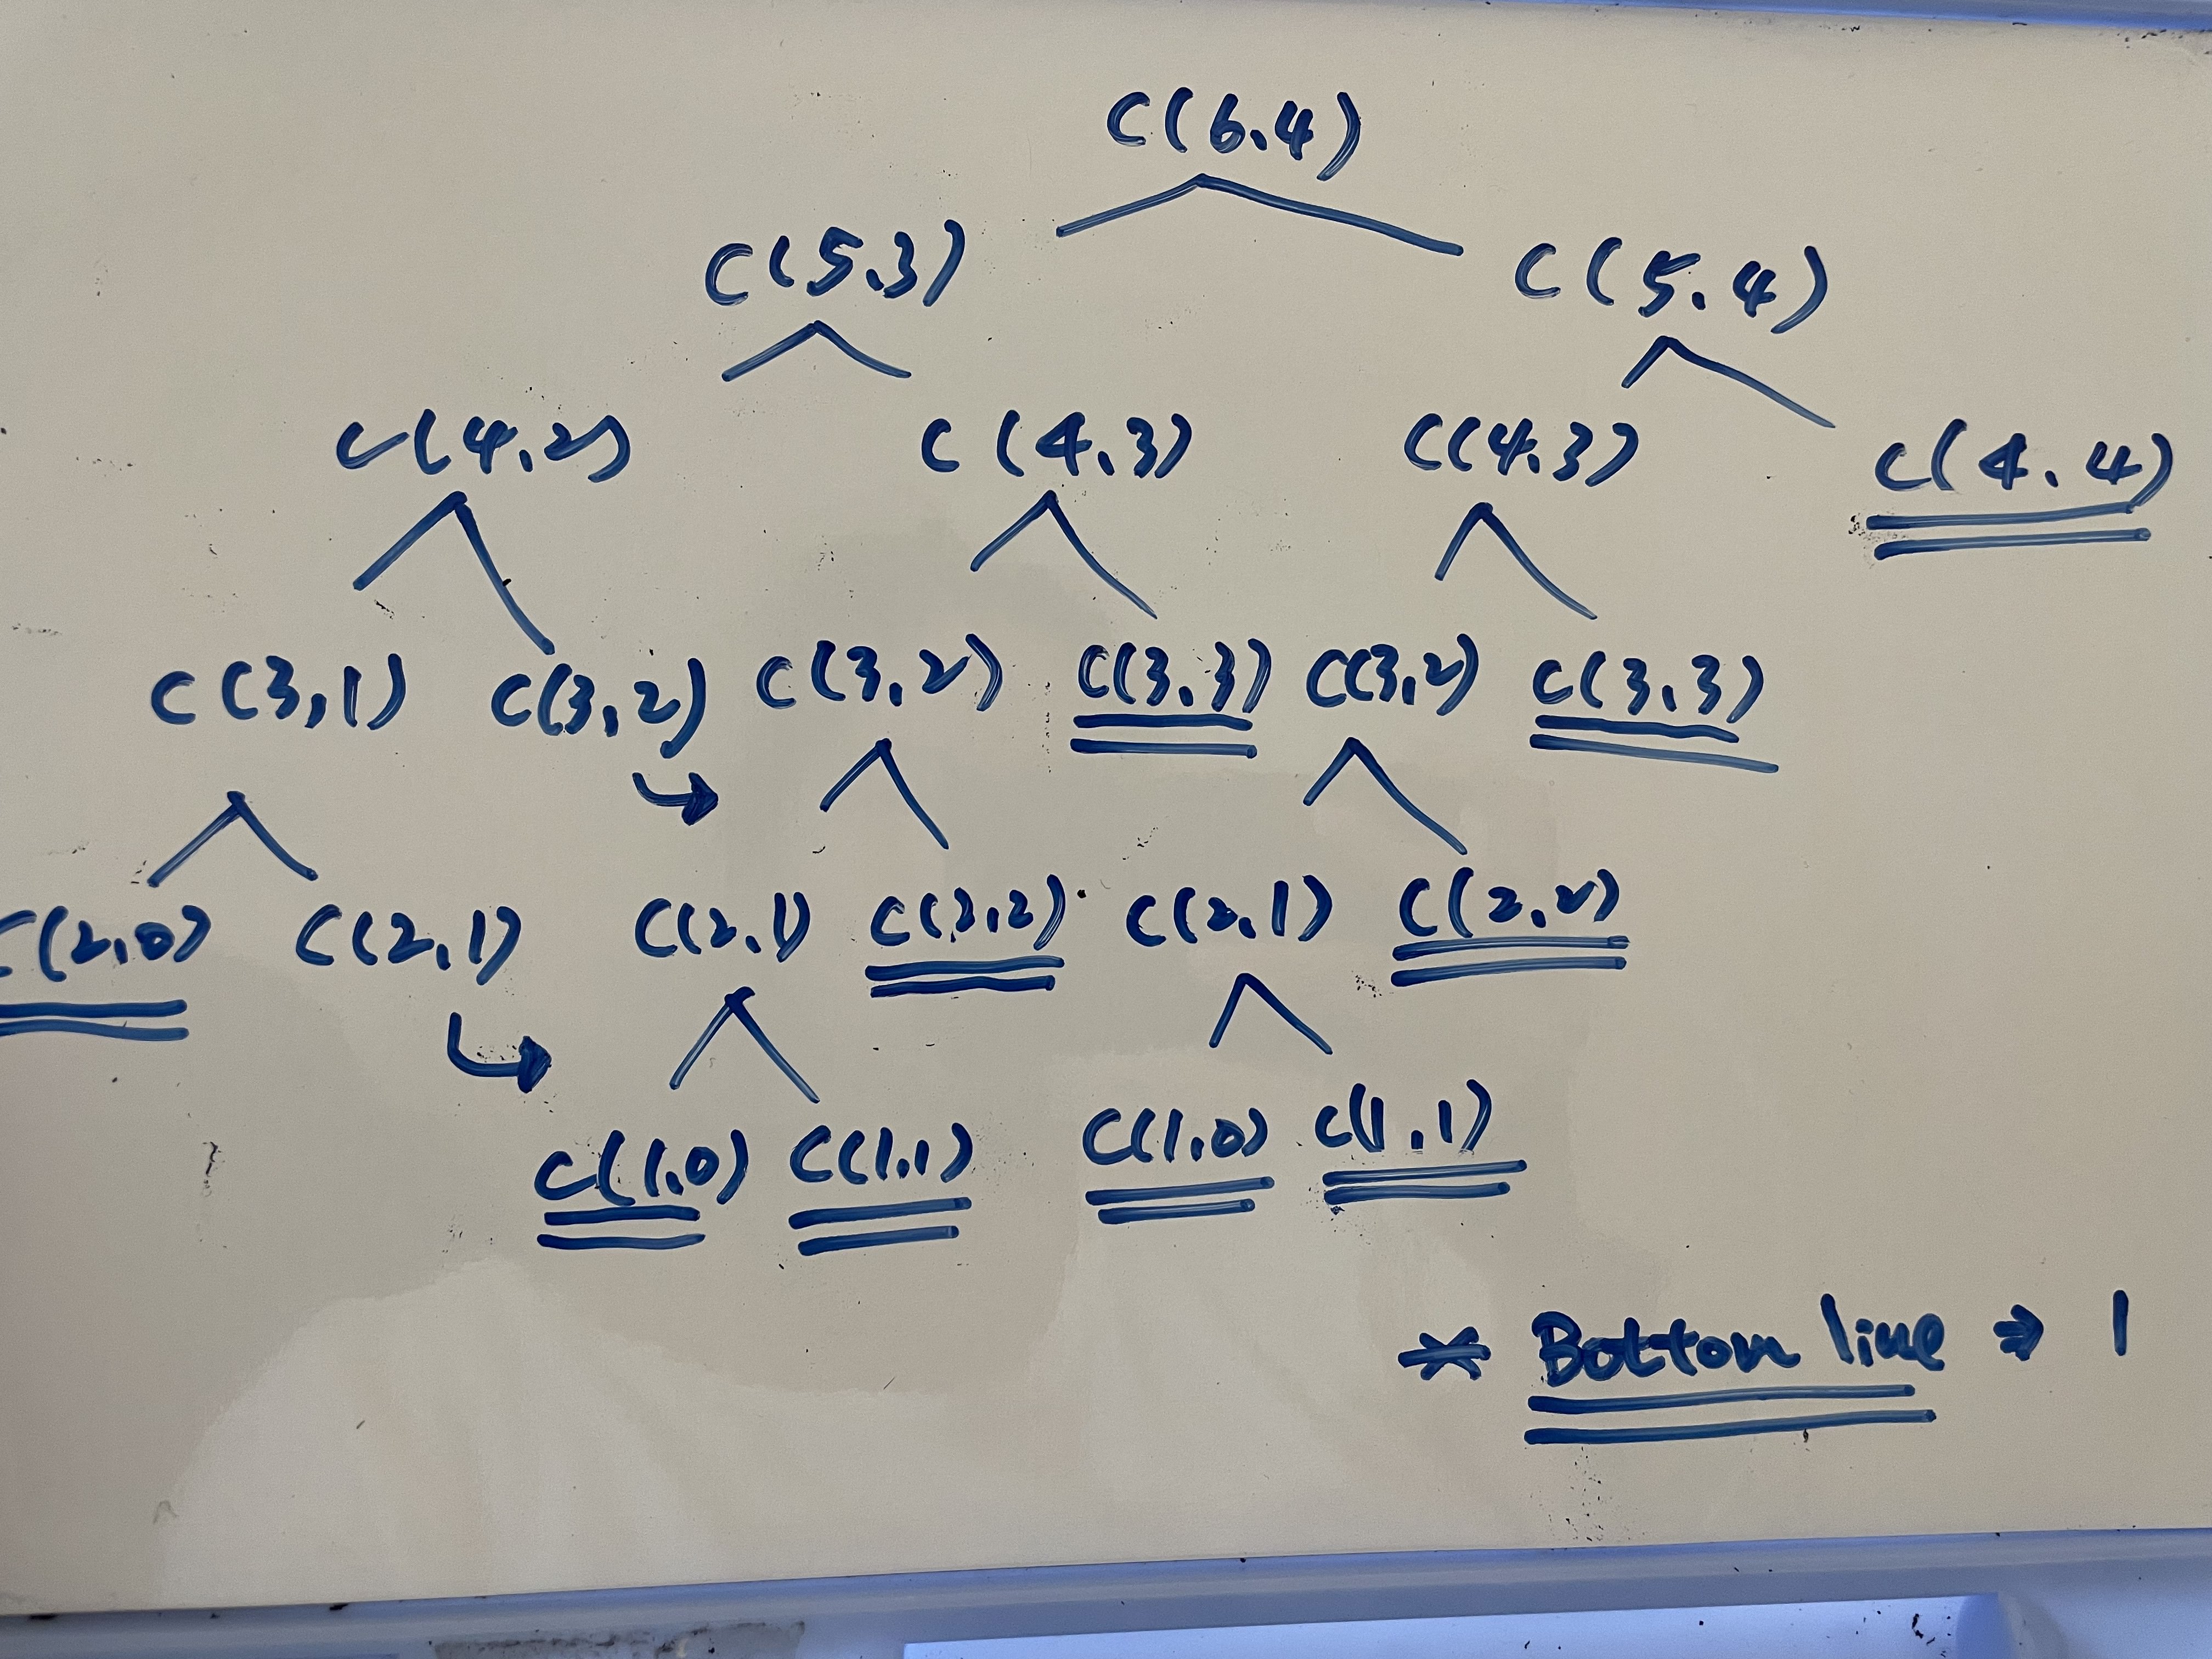 C(6.4)
C(5.3) C(5.4)
C(4.2) C(4.3) C(4.3) C(4.4)
C(3,1) C(3,2) C(3,2) C(3.3) C(3,2) C(3.3)
C(2,0) C(2,1) C(2,1) C(2,2) C(2,1) C(2,2)
C(1,0) C(1,1) C(1,0) C(1,1)
* Bottom line ⇒ 1